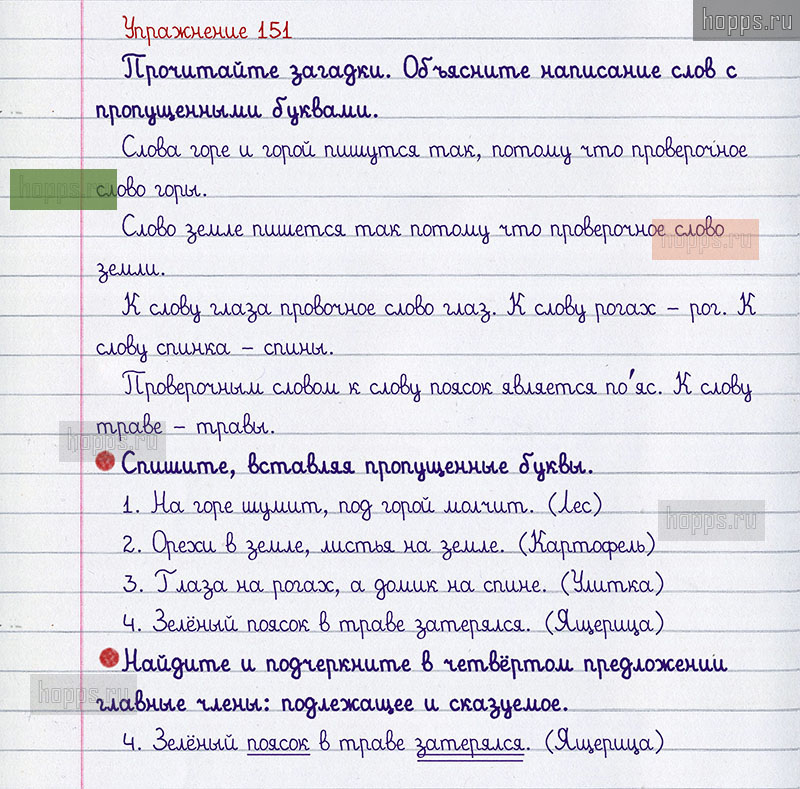 hopps.ru
Упражнение 151
Прочитайте загадки. Объясните написание слов с
пропущенными буквами.
Слова горе и горой пишутся так, потому что проверочное
слово горы.
hopps.ru
Слово земле пишется так потому что проверочное слово
hopps.ru
земли.
К слову глаза провочное слово глаз. К слову рогах – рог. К
слову спинка – спины.
Проверочным словом к слову поясок является по'яс. К слову
траве – травы.
hopps.ru
Спишите, вставляя пропущенные буквы.
1. На горе шумит, под горой молчит. (Лес)
hopps.ru
2. Орехи в земле, листья на земле. (Картофель)
3. Глаза на рогах, а домик на спине. (Улитка)
4. Зелёный поясок в траве затерялся. (Ящерица)
Найдите и подчеркните в четвёртом предложении
hopps.ru
главные члены: подлежащее и сказуемое.
4. Зелёный поясок в траве затерялся. (Ящерица)